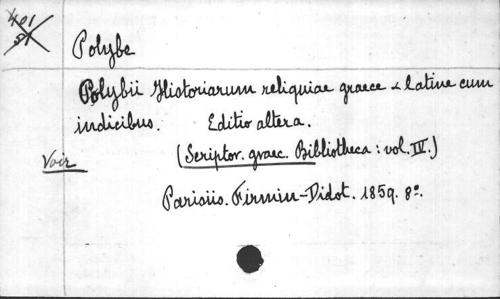 401
Polybe
Polybii Historiarum reliquiae graece & latine cum
indicibus. Editio altera.
Voir (Scriptor. graec. Bibliotheca : vol. IV.)
Parisiis. Firmin-Didot. 1859. 8º.